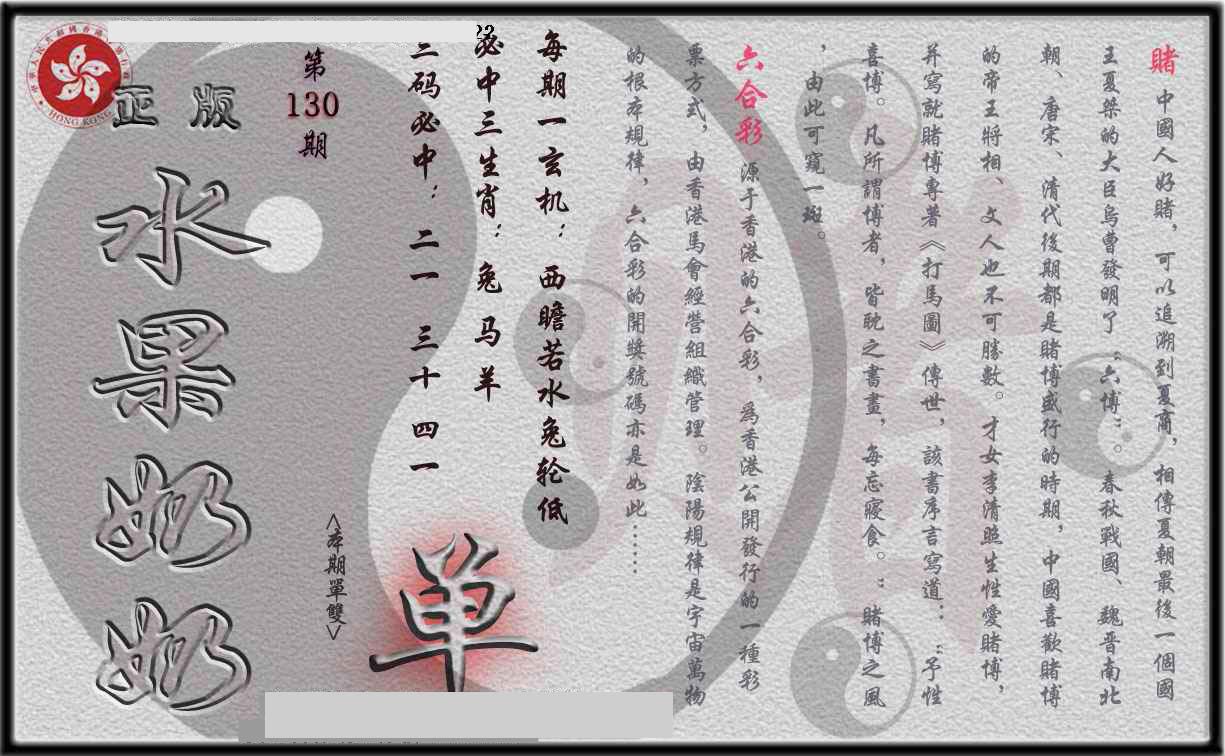 賭 中國人好賭，可以追溯到夏商，相傳夏朝最後一個國
王夏桀的大臣烏曹發明了“六博”。春秋戰國、魏晉南北
朝、唐宋、清代後期都是賭博盛行的時期，中國喜歡賭博
的帝王將相、文人也不可勝數。才女李清照生性愛賭博，
并寫就賭博專著《打馬圖》傳世，該書序言寫道：：“予性
喜博。凡所謂博者，皆耽之書畫，每忘寢食。”：賭博之風
，由此可窺一斑。
六合彩 源于香港的六合彩，爲香港公開發行的一種彩
票方式，由香港馬會經營組織管理。陰陽規律是宇宙萬物
的根本規律，六合彩的開獎號碼亦是如此……
每期一玄机：西瞻若水兔轮低
必中三生肖：兔 马 羊
三码必中：二一 三十 四一
第
130
期
正版
水果奶奶
<本期單雙>
单
HONG KONG